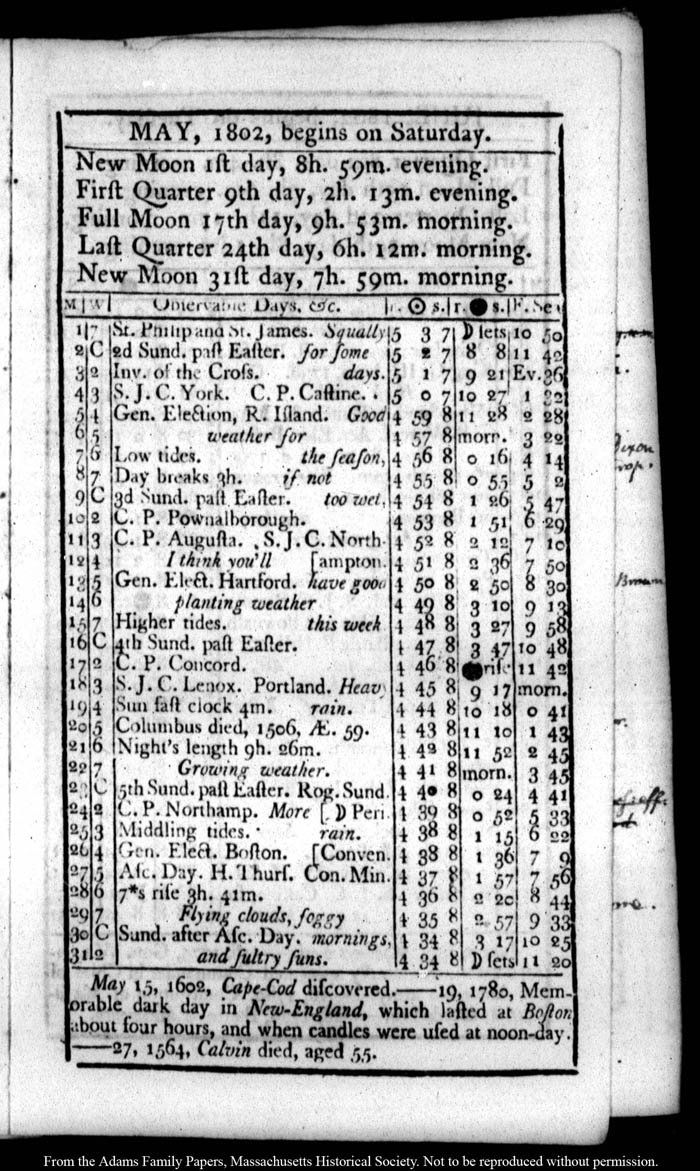 MAY, 1802, begins on Saturday.
New Moon 1ſt day, 8h. 59m. evening.
Firſt Quarter 9th day, 2h. 13m. evening.
Full Moon 17th day, 9h. 53m. morning.
Laſt Quarter 24th day, 6h. 12m. morning.
New Moon 31ſt day, 7h. 59m. morning.
M|W| Obſervable Days, &c. |r. ☉ s.|r. ● s.|F. Sea
1|7|St. Philip and St. James. Squally|5 3 7|D ſets|10 50
2|C|2d Sund. paſt Eaſter. for ſome|5 2 7|8 8|11 42
3|2|Inv. of the Croſs. days.|5 1 7|9 21|Ev. 36
4|3|S. J. C. York. C. P. Caſtine.|5 0 7|10 27|1 32
5|4|Gen. Election, R. Iſland. Good|4 59 8|11 28|2 28
6|5|weather for|4 57 8|morn.|3 22
7|6|Low tides. the ſeaſon,|4 56 8|0 16|4 14
8|7|Day breaks 3h. if not|4 55 8|0 55|5 2
9|C|3d Sund. paſt Eaſter. too wet,|4 54 8|1 26|5 47
10|2|C. P. Pownalborough.|4 53 8|1 51|6 29
11|3|C. P. Auguſta. S. J. C. North-|4 52 8|2 12|7 10
12|4|I think you'll [ampton.|4 51 8|2 36|7 50
13|5|Gen. Elect. Hartford. have good|4 50 8|2 50|8 30
14|6|planting weather|4 49 8|3 10|9 13
15|7|Higher tides. this week|4 48 8|3 27|9 58
16|C|4th Sund. paſt Eaſter.|4 47 8|3 47|10 48
17|2|C. P. Concord.|4 46 8|●riſe|11 42
18|3|S. J. C. Lenox. Portland. Heavy|4 45 8|9 17|morn.
19|4|Sun faſt clock 4m. rain.|4 44 8|10 18|0 41
20|5|Columbus died, 1506, Æ. 59.|4 43 8|11 10|1 43
21|6|Night's length 9h. 26m.|4 42 8|11 52|2 45
22|7|Growing weather.|4 41 8|morn.|3 45
23|C|5th Sund. paſt Eaſter. Rog. Sund.|4 40 8|0 24|4 41
24|2|C. P. Northamp. More [D Peri.|4 39 8|0 52|5 33
25|3|Middling tides. rain.|4 38 8|1 15|6 22
26|4|Gen. Elect. Boſton. [Conven.|4 38 8|1 36|7 9
27|5|Aſc. Day. H. Thurſ. Con. Min.|4 37 8|1 57|7 56
28|6|7*s riſe 3h. 41m.|4 36 8|2 20|8 44
29|7|Flying clouds, foggy|4 35 8|2 57|9 33
30|C|Sund. after Aſc. Day. mornings,|4 34 8|3 17|10 25
31|2|and ſultry ſuns.|4 34 8|D ſets|11 20
May 15, 1602, Cape-Cod diſcovered.——19, 1780, Mem-
orable dark day in New-England, which laſted at Boſton
about four hours, and when candles were uſed at noon-day.
——27, 1564, Calvin died, aged 55.
From the Adams Family Papers, Massachusetts Historical Society. Not to be reproduced without permission.